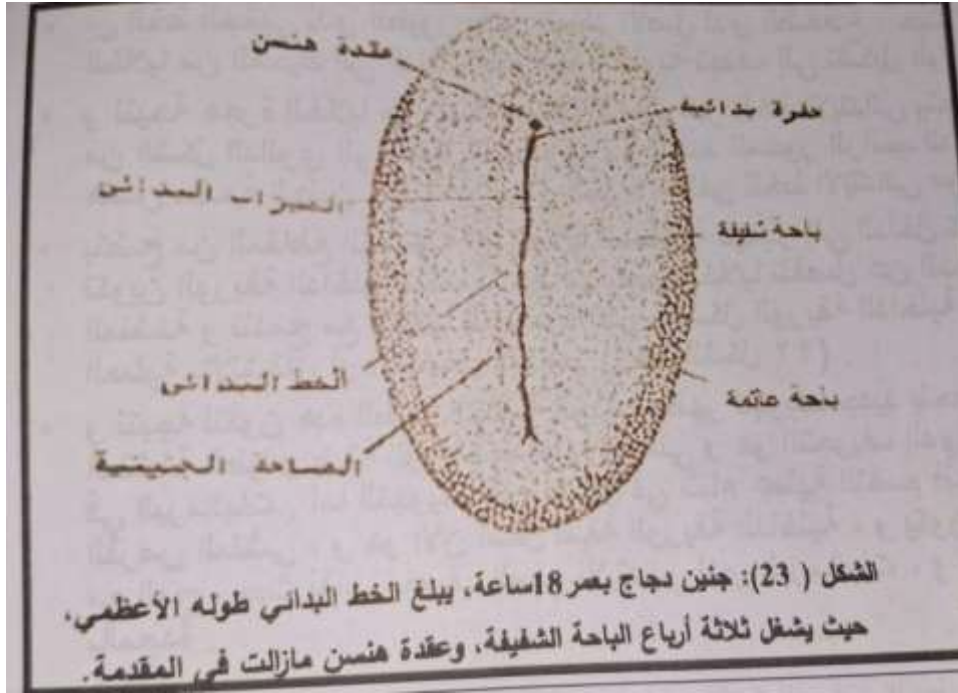 عقدة هنسن
حفرة بدائية
الميزاب البدائي
باحة شفيفة
الخط البدائي
باحة عاتمة
المساحة الجنينية
الشكل ( 23): جنين دجاج بعمر 18ساعة، يبلغ الخط البدائي طوله الأعظمي،
حيث يشغل ثلاثة أرباع الباحة الشفيفة، وعقدة هنسن مازالت في المقدمة.